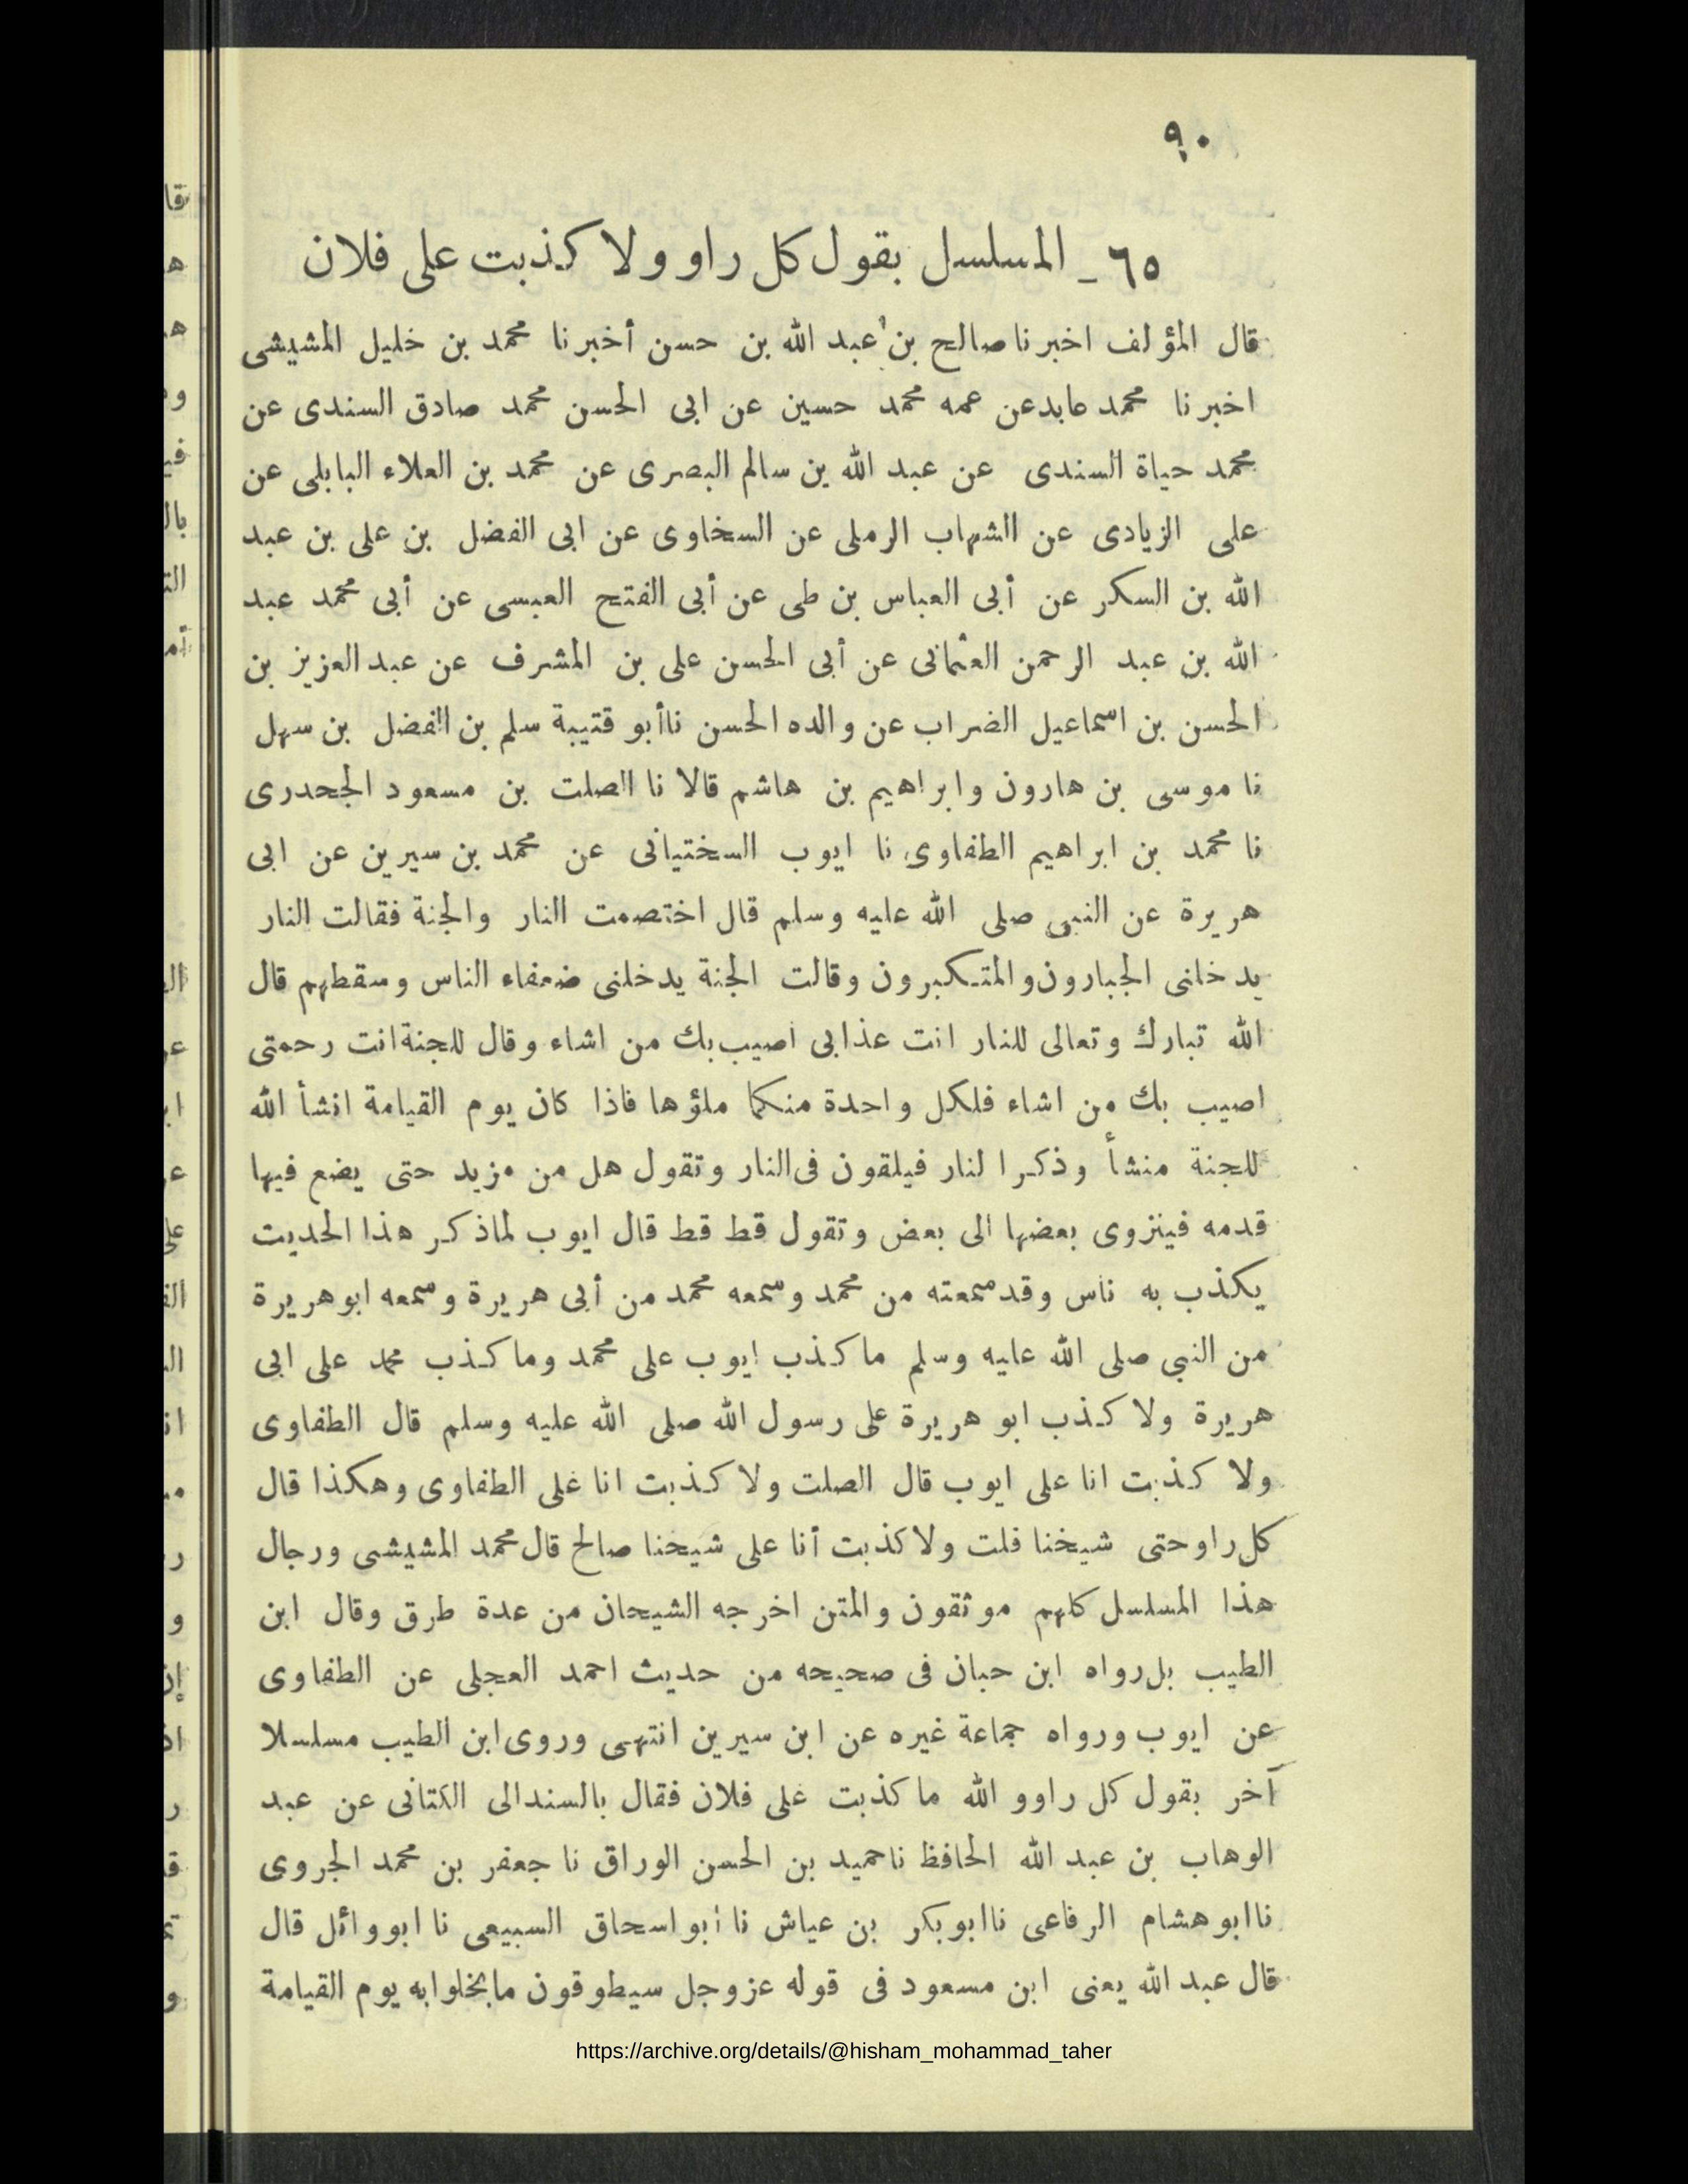 ٩٠
٦٥ ـ المسلسل بقول كل راو ولا كذبت على فلان
قال المؤلف اخبرنا صالح بن عبد الله بن حسن أخبرنا محمد بن خليل المشيشى
اخبرنا محمد عابد عن عمه محمد حسين عن ابى الحسن محمد صادق السندى عن
محمد حياة السندى عن عبد الله بن سالم البصرى عن محمد بن العلاء البابلى عن
على الزيادى عن الشهاب الرملى عن السخاوى عن ابى الفضل بن على بن عبد
الله بن السكر عن أبى العباس بن طى عن أبى الفتح العبسى عن أبى محمد عبد
الله بن عبد الرحمن العثمانى عن أبى الحسن على بن المشرف عن عبد العزيز بن
الحسن بن اسماعيل الضراب عن والده الحسن نا أبو قتيبة سلم بن الفضل بن سهل
نا موسى بن هارون وابراهيم بن هاشم قالا نا الصلت بن مسعود الجحدرى
نا محمد بن ابراهيم الطفاوى نا ايوب السختيانى عن محمد بن سيرين عن ابى
هريرة عن النبى صلى الله عليه وسلم قال اختصمت النار والجنة فقالت النار
يدخلنى الجبارون والمتكبرون وقالت الجنة يدخلنى ضعفاء الناس وسقطهم قال
الله تبارك وتعالى للنار انت عذابى اصيب بك من اشاء وقال للجنة انت رحمتى
اصيب بك من اشاء فلكل واحدة منكما ملؤها فاذا كان يوم القيامة انشأ الله
للجنة منشأ وذكر النار فيلقون فى النار وتقول هل من مزيد حتى يضع فيها
قدمه فينزوى بعضها الى بعض وتقول قط قط قال ايوب لما ذكر هذا الحديت
يكذب به ناس وقد سمعته من محمد وسمعه محمد من أبى هريرة وسمعه ابو هريرة
من النبى صلى الله عليه وسلم ما كذب ايوب على محمد وما كذب محمد على ابى
هريرة ولا كذب ابو هريرة على رسول الله صلى الله عليه وسلم قال الطفاوى
ولا كذبت انا على ايوب قال الصلت ولا كذبت انا على الطفاوى وهكذا قال
كل راو حتى شيخنا فلت ولا كذبت أنا على شيخنا صالح قال محمد المشيشى ورجال
هذا المسلسل كلهم موثقون والمتن اخرجه الشيحان من عدة طرق وقال ابن
الطيب بل رواه ابن حبان فى صحيحه من حديث احمد العجلى عن الطفاوى
عن ايوب ورواه جماعة غيره عن ابن سيرين انتهى وروى ابن الطيب مسلسلا
آخر بقول كل راو و الله ما كذبت على فلان فقال بالسند الى الكتانى عن عبد
الوهاب بن عبد الله الحافظ نا حميد بن الحسن الوراق نا جعفر بن محمد الجروى
نا ابو هشام الرفاعى نا ابو بكر بن عياش نا أبو اسحاق السبيعى نا ابو وائل قال
قال عبد الله يعنى ابن مسعود فى قوله عز وجل سيطوقون ما بخلوا به يوم القيامة
https://archive.org/details/@hisham_mohammad_taher